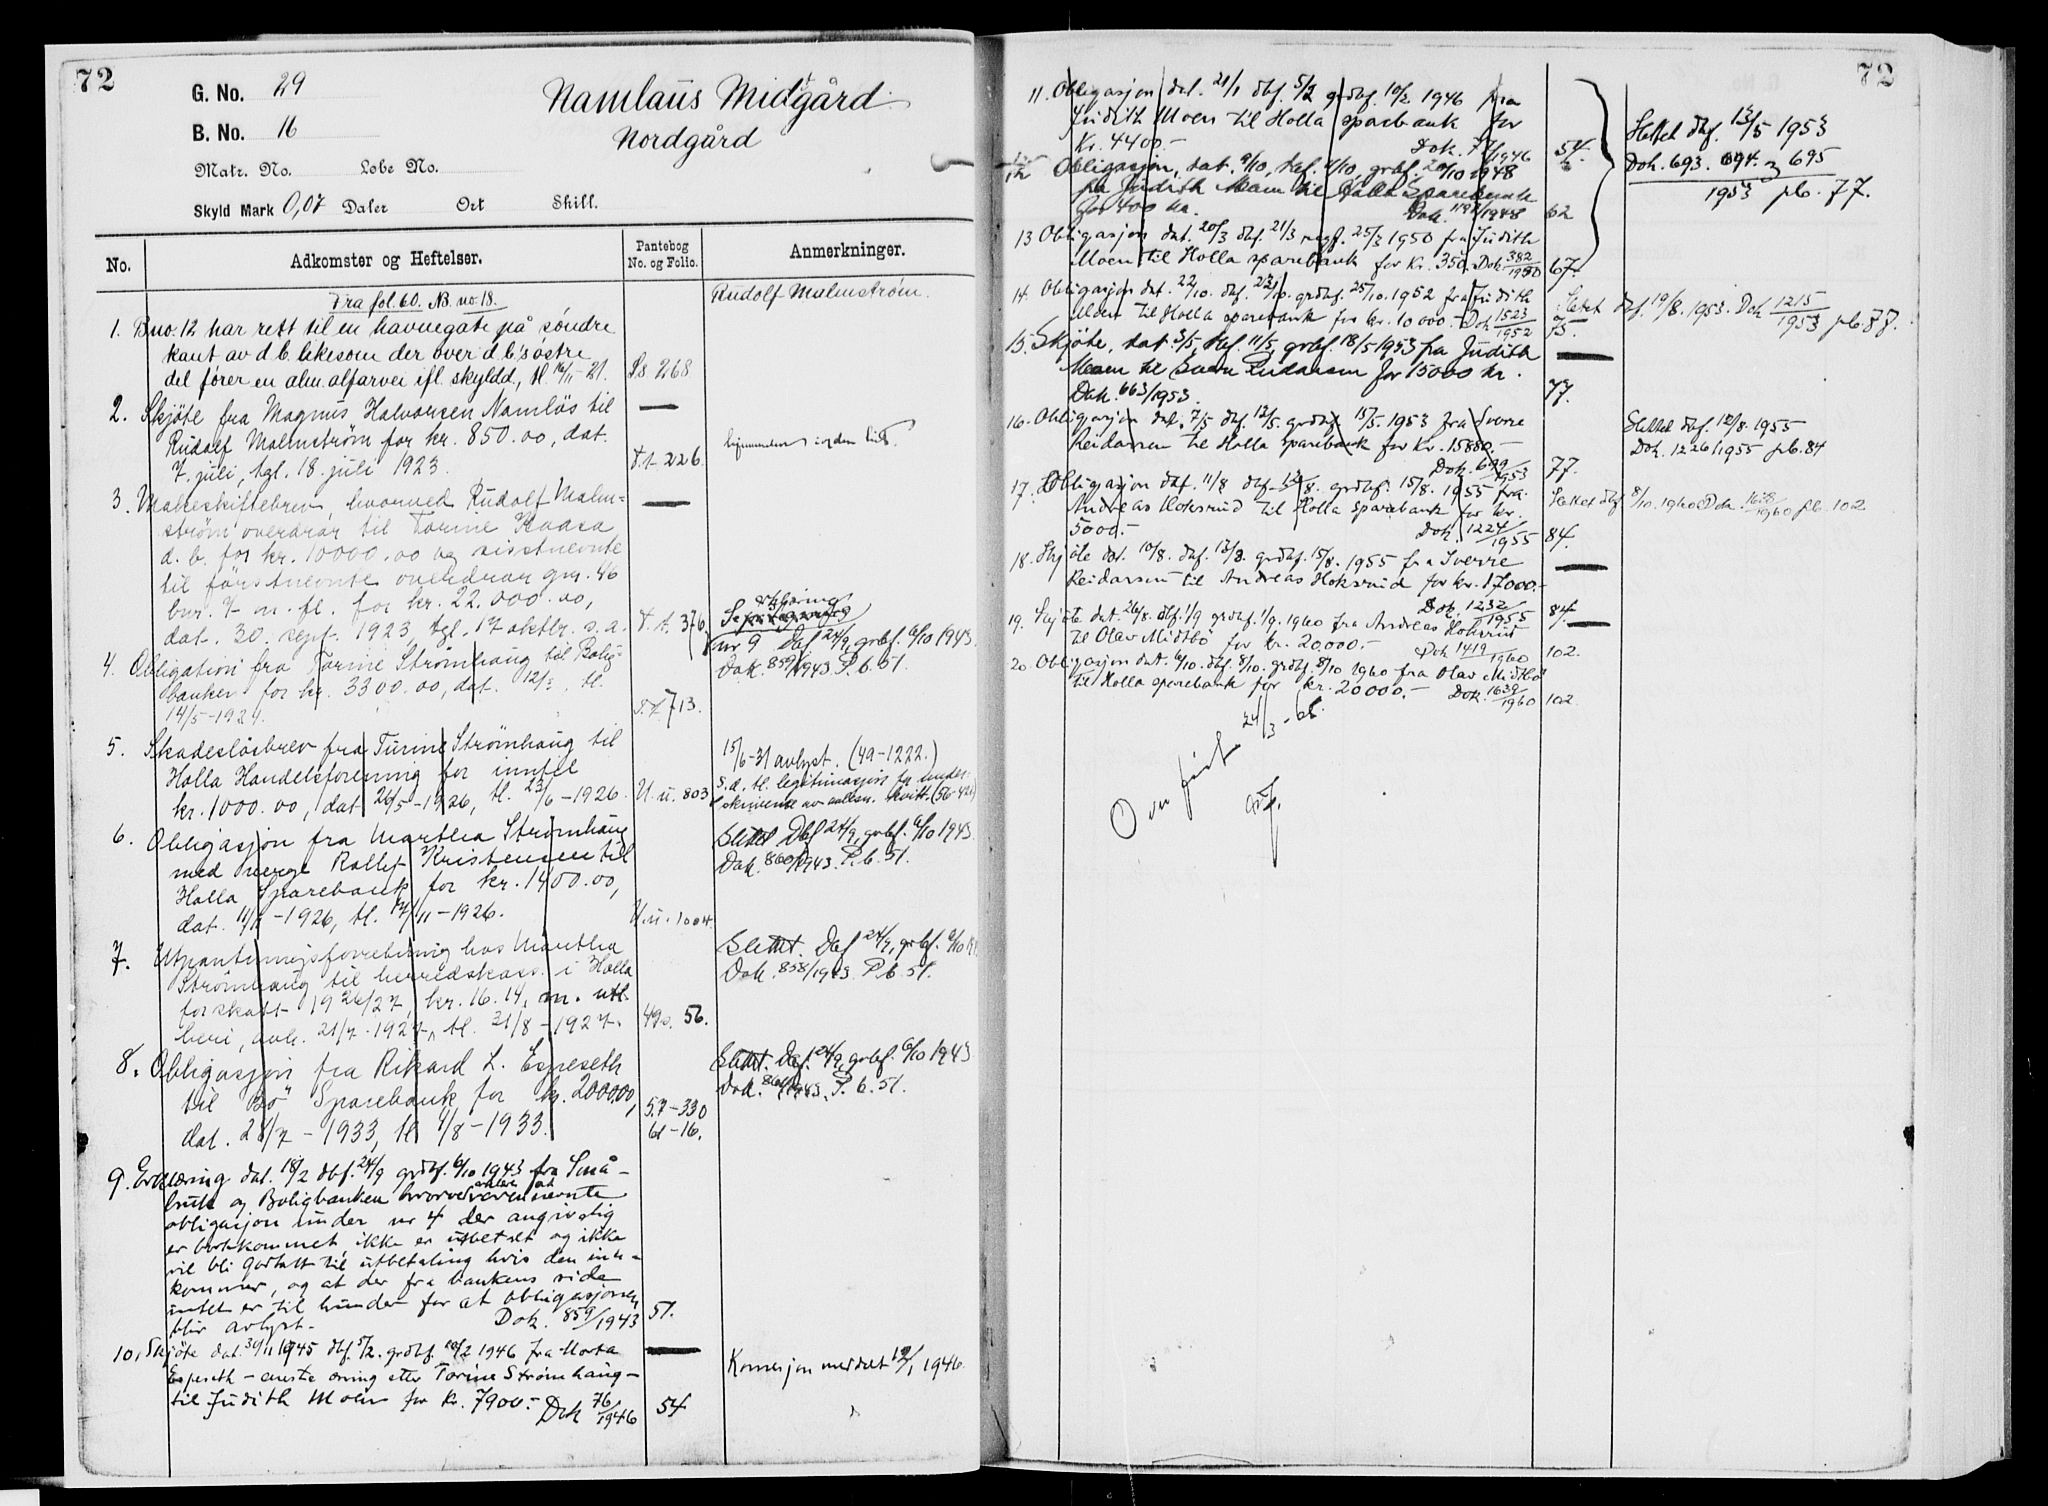 72
G. No. 29
Namlaus Midtgård
B. No. 16
Nordgård
Matr. No. Løbe No.
Skyld Mark 0,07 Daler Ort Skill.
No. Adkomster og Heftelser. Pantebog No. og Folio. Anmerkninger.
Fra fol. 60. NB. no. 18. Rudolf Malmstrøm.
1. Bno. 12 har rett til en havnegate på søndre
kant av d.b. likesom der over d.b.'s østre
del fører en alm. alfarvei ifl. skyldd., tl. 16/11-21. Ss 268
2. Skjöte fra Magnus Halvorsen Namlös til
Rudolf Malmström for kr. 850.00, dat.
7. juli, tgl. 18. juli 1923. T.t. 226.
3. Makeskiftebrev, hvorved Rudolf Malm-
ström overdrar til Torine Haasa
d.b. for kr. 10000.00 og sisstnevnte
til förstnevnte overdrar gnr. 46
bnr. 7 m.fl. for kr. 22.000.00,
dat. 30. sept. 1923, tgl. 17 oktbr. s.a. T.t. 376.
4. Obligation fra Torine Strömhaug til Bolig-
banken for kr. 3300.00, dat. 12/5, tl.
14/5-1924. T.t. 713.
Se erklæring
nr 9 Dbf 24/9, grbf. 6/10 1943.
Dok. 859/1943 P.b. 51.
5. Skadeslösbrev fra Turine Strömhaug til
Holla Handelsforening for inntil
kr. 1000.00, dat. 26/5-1926, tl. 23/6-1926. U.u. 803
15/6-31 avlyst. (49-1222.)
S.d. tl. legitimasjon for under-
skriverne av kvitt. (56-421)
6. Obligasjon fra Marthea Strömhaug
med verge Rollef Kristensen til
Holla Sparebank for kr. 1400.00,
dat. 11/11-1926, tl. 17/11-1926. U.u. 1004.
Slettet Dbf 24/9, grbf. 6/10 1943.
Dok. 860/1943. P.b. 51.
7. Utpantningsforretning hos Marthea
Strömhaug til herredskass. i Holla
for skatt 1926/27, kr. 16.14, m. utl.
heri, avh. 21/7-1927, tl. 31/8-1927. 49 56.
Slettet. Dbf 24/9, grbf. 6/10
Dok. 858/1943 P.b. 51.
8. Obligasjon fra Rikard L. Espeseth
til Bö Sparebank for kr. 2000.00,
dat. 28/7-1933, tl. 1/8-1933. 57-330
61-16.
Slettet. Dbf. 24/9, grbf. 6/10 1943
Dok. 861/1943. P.b. 51.
9. Erklæring dat. 18/2 dbf. 24/9 grdbf. 6/10 1943 fra Små-
bruk og Boligbanken hvorved nevnte
obligasjon under nr 4 der angivelig
er bortkommet ikke er utbetalt og ikke
vil bli godtatt til utbetaling hvis den inn-
kommer, og at der fra bankens side
intet er til hinder for at obligasjonen
blir avlyst. Dok. 859/1943 51.
10. Skjöte dat. 30/11 1945 dbf. 5/2. grdbf. 10/2 1946 fra Marta
Espeseth - eneste arving etter Torine Strömhaug -
til Judith Moen for kr. 7900.- Dok 76/1946 54
Konsesjon meddelt 12/1 1946.
72
11. Obligasjon dat. 21/1 dbf. 5/2 grdbf. 10/2 1946 fra
Judith Moen til Holla sparebank for
Kr. 4400.- Dok. 77/1946 54.
12 Obligasjon, dat. 9/10, dbf. 11/10, grbf. 20/10 1948
fra Judith Moen til Holla Sparebank
for 400 kr. Dok. 1192/1948 62
13 Obligasjon dat. 20/3 dbf. 21/3 regf. 25/3 1950 fra Judith
Moen til Holla sparebank for Kr. 350. Dok 382/1950 67.
Slettet dbf. 12/5 1953
Dok. 693. 694. og 695
1953 pb. 77.
14. Obligasjon dat. 22/10. dbf. 23/10. grdbf. 25/10. 1952 fra Judith
Moen til Holla sparebank for kr. 10 000.- Dok 1523/1952 75.
Slettet dbf. 19/8. 1953. Dok 1215/1953 pb. 77.
15. Skjöte, dat. 5/5, dbf. 11/5, grbf. 18/5 1953 fra Judith
Moen til Sverre Reidarsen for 15000 kr.
Dok. 663/1953. 77.
16. Obligasjon dat. 7/5 dbf. 12/5. grdbf. 15/5. 1953 fra Sverre
Reidarsen til Holla sparebank for Kr. 15850.-
Dok. 699/1953 77.
Slettet dbf. 12/8. 1955
Dok. 1226/1955 pb. 84
17. Obligasjon dat. 11/8 dbf. 12/8. grdbf. 15/8. 1955 fra
Andreas Hoksrud til Holla sparebank for kr.
5000.- Dok. 1224/1955 84.
Slettet dbf 8/10. 1960 Dok. 1638/1960 pb. 102
18. Skjöte dat. 10/8. dbf. 12/8. grdbf. 15/8. 1955 fra Sverre
Reidarsen til Andreas Hoksrud for kr. 17000.-
Dok. 1232/1955 84.
19. Skjöte dat. 26/8. dbf. 1/9 grdbf. 1/9. 1960 fra Andreas Hoksrud
til Olav Midtbö for kr. 20.000.- Dok 1419/1960 102.
20. Obligasjon dat. 6/10. dbf. 8/10. grdbf. 8/10 1960 fra Olav Midtbö
til Holla sparebank for kr. 20000.- Dok. 1639/1960 102.
Overfört 24/3-65